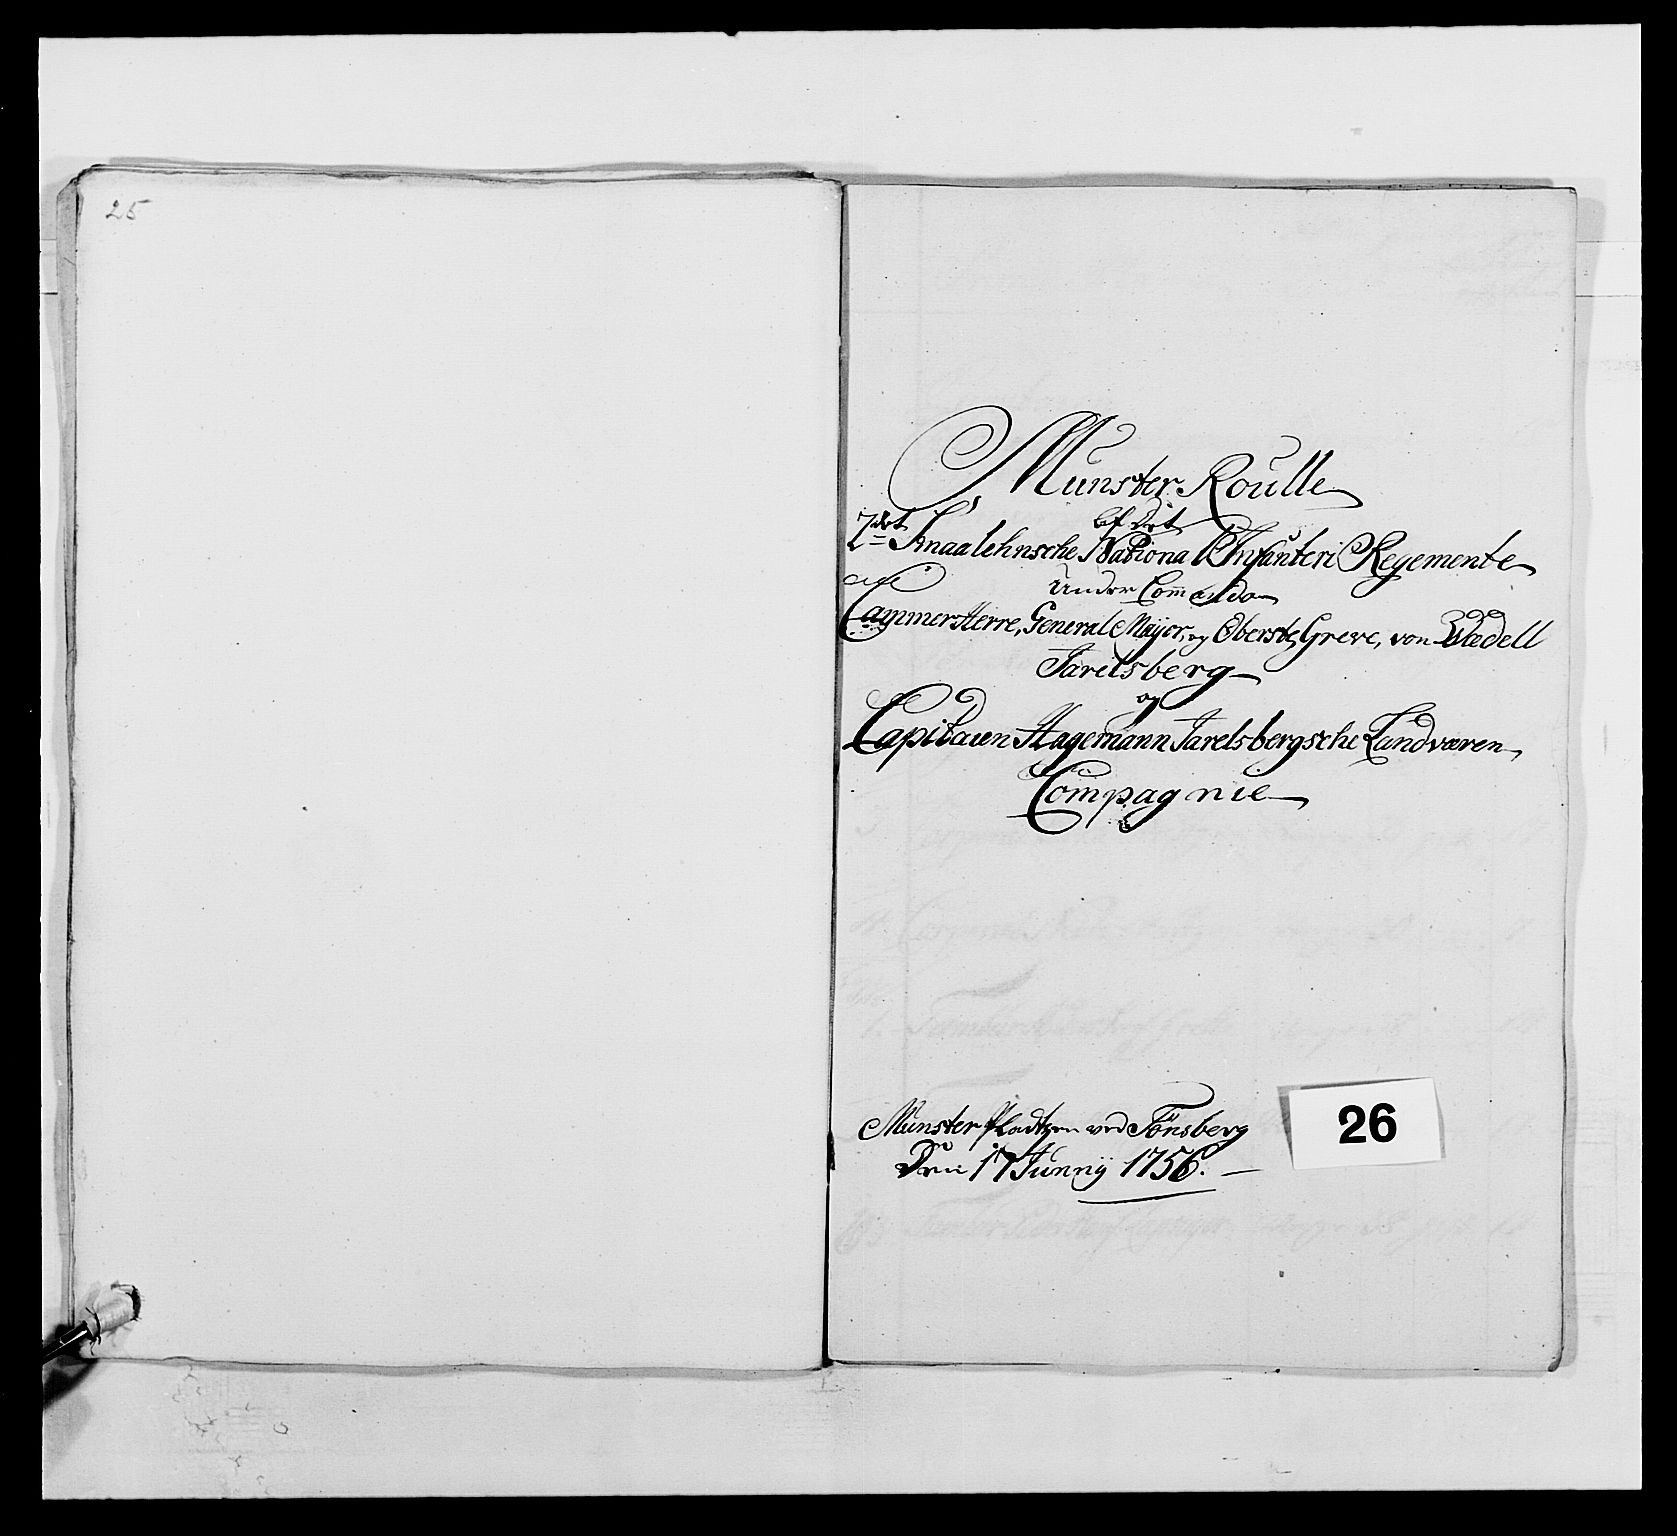 25
Munster Roulle
af Det
2det Smaalehnsche National Infanteri Regemente
Under Commendo
af
Cammer Herre, General Mayor, og Oberste, Greve, von Wedell
Jarelsberg
og
Capitaien Hagemann Jarelsbergsche Landværen
Compagnie
Munster Pladtzen ved Tönsberg
Den 17 Junny 1756.
26